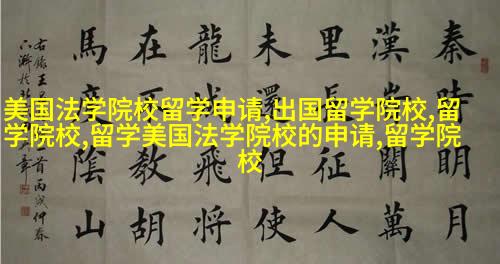 美国法学院校留学申请,出国留学院校,留
学院校,留学美国法学院校的申请,留学院
校
秦時眀月
漢時關萬
里長征人
未還但使
龍城飛將
在不教胡
馬度陰山
右錄王
首丙戌仲春